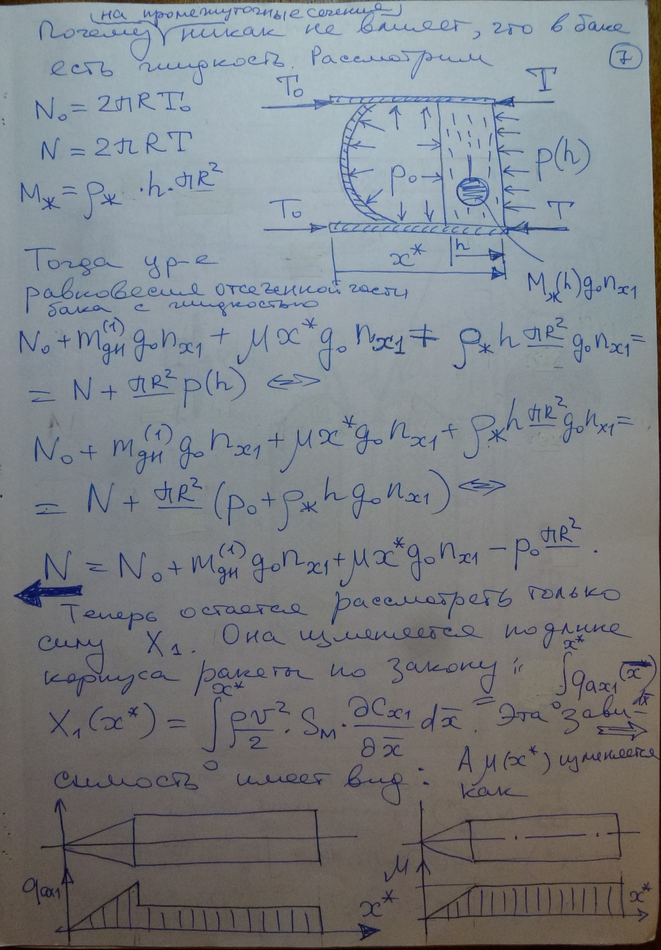 (на промежуточные сечения)
Почему никак не влияет, что в баке
есть жидкость. Рассмотрим
7
N₀ = 2πRT₀
N = 2πRT
M_ж = ρ_ж · h · πR²
T₀
T
p₀
p(h)
T₀
T
x*
h
M_ж(h)g₀n_x1
Тогда ур-е
равновесия отсечённой части
бака с жидкостью
N₀ + m_дн^(1) g₀n_x1 + μx*g₀n_x1 + ρ_ж h πR² g₀n_x1 =
= N + πR² p(h) ⇔
N₀ + m_дн^(1) g₀n_x1 + μx*g₀n_x1 + ρ_ж h πR² g₀n_x1 =
= N + πR² (p₀ + ρ_ж h g₀n_x1) ⇔
N = N₀ + m_дн^(1) g₀n_x1 + μx*g₀n_x1 − p₀ πR².
Теперь остаётся рассмотреть только
силу X₁. Она изменяется по длине
корпуса ракеты по закону: ∫₀^x* q_ax1(x̄*) dx̄
X₁(x*) = ∫₀^x* ρv²/2 · S_м · ∂C_x1/∂x̄ dx̄ = . Эта зави- ⇒
симость имеет вид:
А μ(x*) изменяется
как
q_ax1
x*
μ
x*